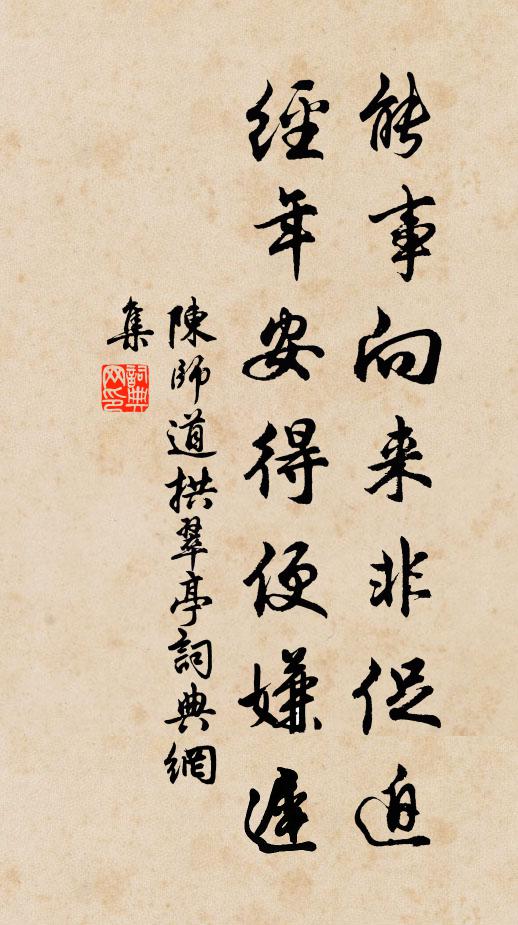 能事向来非促迫
經年安得便嫌遲
陳師道拱翠亭詞典網
集
詞典網印